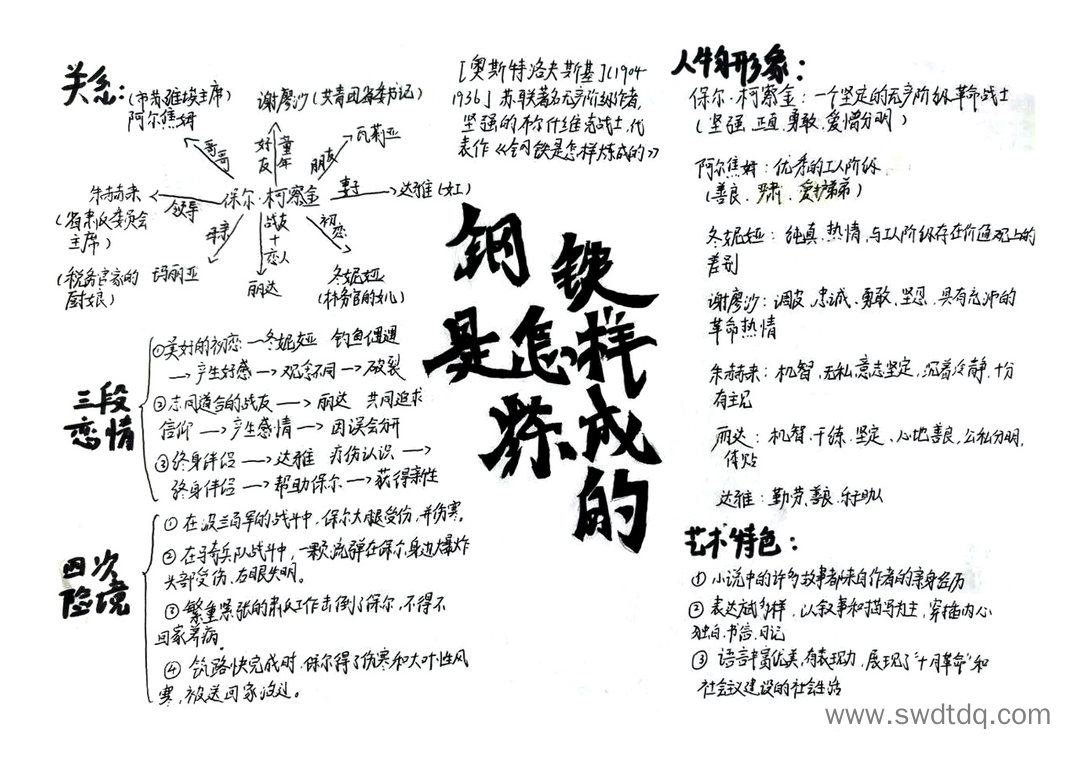 关系：
(市苏维埃主席)
阿尔焦姆
谢廖沙(共青团省委书记)
瓦莉亚
哥哥
好友
童年
朋友
朱赫来
领导
保尔·柯察金
妻子
达雅(女工)
(省肃反委员会
主席)
母亲
战友
+
恋人
初恋
(税务官家的
厨娘)
玛丽亚
丽达
冬妮娅
(林务官的女儿)
[奥斯特洛夫斯基](1904
1936」苏联著名无产阶级作者,
坚强的布尔什维克战士,代
表作《钢铁是怎样炼成的》
三段
恋情
①美好的初恋—冬妮娅 钓鱼偶遇
→产生好感→观念不同→破裂
②志同道合的战友→丽达 共同追求
信仰→产生感情→因误会分开
③终身伴侣→达雅 疗伤认识→
终身伴侣→帮助保尔→获得新生
四次
险境
① 在波兰白军的战斗中,保尔大腿受伤,并伤寒。
② 在骑兵队战斗中,一颗流弹在保尔身边爆炸
头部受伤,右眼失明。
③ 繁重紧张的肃反工作击倒了保尔,不得不
回家养病.
④ 筑路快完成时,保尔得了伤寒和大叶性风
寒,被送回家
钢铁
是怎样
炼成
的
人物形象：
保尔·柯察金：一个坚定的无产阶级革命战士
(坚强、正直、勇敢、爱憎分明)
阿尔焦姆：优秀的工人阶级
(善良、严肃、爱护弟弟)
冬妮娅：纯真、热情,与工人阶级存在价值观上的
差别
谢廖沙：调皮、忠诚、勇敢、坚忍、具有充沛的
革命热情
朱赫来：机智,无私,意志坚定,沉着冷静,十分
有主见
丽达：机智、干练、坚定、心地善良,公私分明,
体贴
达雅：勤劳、善良、乐于助人
艺术特色：
① 小说中的许多故事都来自作者的亲身经历
② 表达式多样,以叙事和描写为主,穿插内心
独白、书信、日记
③ 语言丰富优美,有表现力,展现了"十月革命"和
社会主义建设的社会生活
www.swdtdq.com